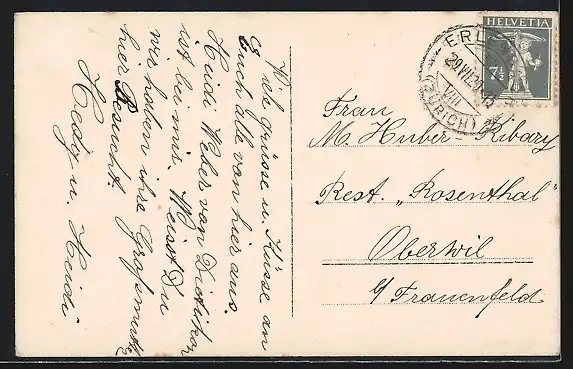 Viele Grüsse u. Küsse an
Euch alle von hier aus.
Heidi Weber von Dietikon
ist bei mir. Weisst Du
wir haben ihre Großmutter
hier Besucht.
Hedy u. Heidi
HELVETIA
7½
29.VII.26
VIII
(ZÜRICH)
Frau
M. Huber - Ribary
Rest. „Rosenthal"
Oberwil
b/ Frauenfeld